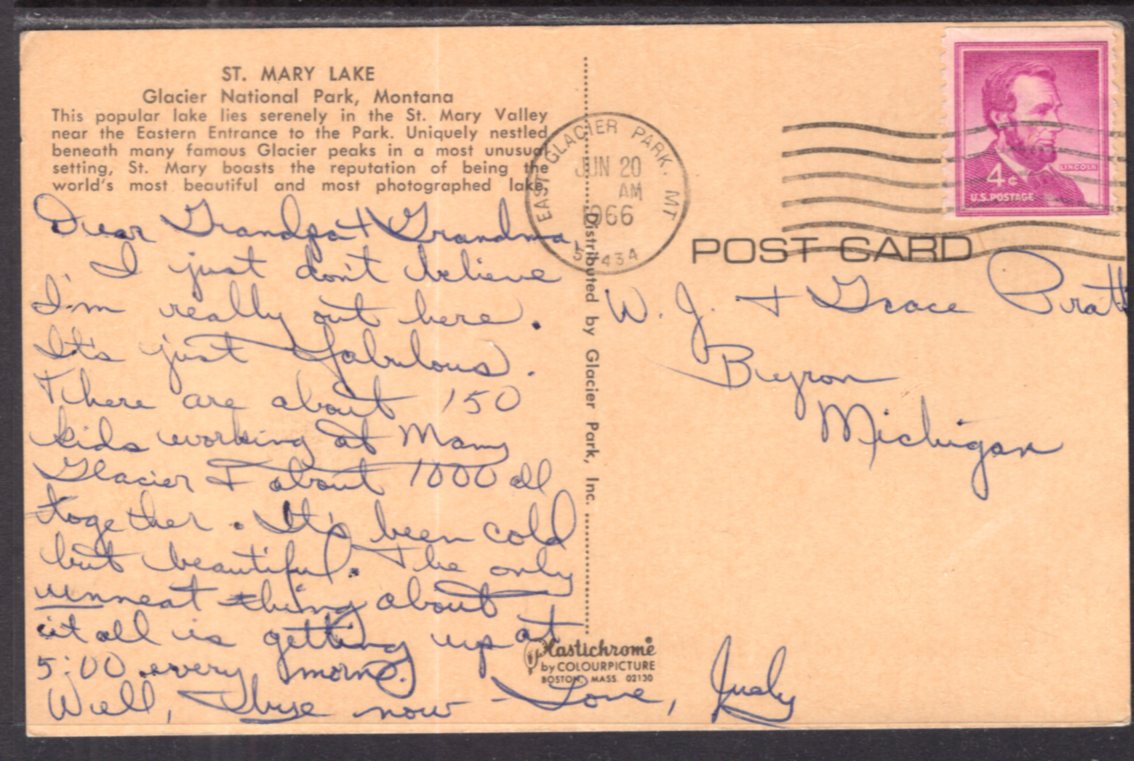 ST. MARY LAKE
Glacier National Park, Montana
This popular lake lies serenely in the St. Mary Valley
near the Eastern Entrance to the Park. Uniquely nestled
beneath many famous Glacier peaks in a most unusual
setting, St. Mary boasts the reputation of being the
world's most beautiful and most photographed lake.
Dear Grandpa + Grandma,
I just don't believe
I'm really out here.
It's just fabulous.
There are about 150
kids working at Many
Glacier + about 1000 all
together. It's been cold
but beautiful. The only
unneat thing about
it all is getting up at
5:00 every morn.
Well, bye now - Love, Judy
Distributed by Glacier Park, Inc.
Plastichrome®
by COLOURPICTURE
BOSTON, MASS. 02130
EAST GLACIER PARK, MT
JUN 20
AM
1966
LINCOLN
4¢
U.S. POSTAGE
POST CARD
W. J. + Grace Pratt
Byron
Michigan